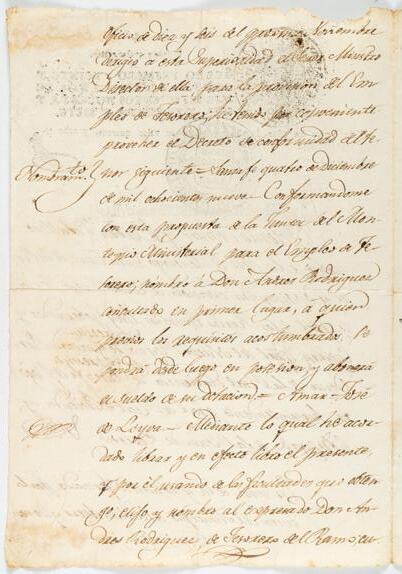 oficio de diez y seis del proximo Noviembre
dirigió a esta Superioridad el Señor Ministro
Director de ella para la provision del Em-
pleo de Tesorero, he tenido por conveniente
proveher de Decreto de conformidad del te-
Nombram.to
nor siguiente = Santafe quatro de diciembre
de mil ochocientos nueve = Conformandome
con esta propuesta de la Junta del Mon-
tepio Ministerial para el Empleo de Te-
sorero, nombro á Don Andres Rodriguez
consultado en primer lugar, á quien
previos los requisitos acostumbrados se
pondrá desde luego en posesion, y abonará
el sueldo de su dotacion = Amar = José
de Leyva = Mediante lo qual he acor-
dado librar y en efecto libro el presente,
y por él usando de las facultades que obten-
go, elijo, y nombro al expresado Don An-
dres Rodriguez de Tesorero del Ramo, cu-